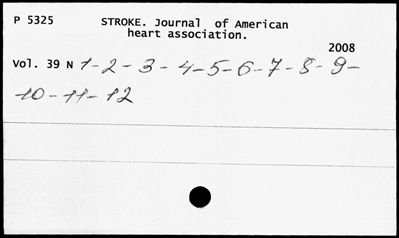 P 5325 STROKE. Journal of American
heart association.
2008
Vol. 39 N 1-2-3-4-5-6-7-8-9-
-10-11-12